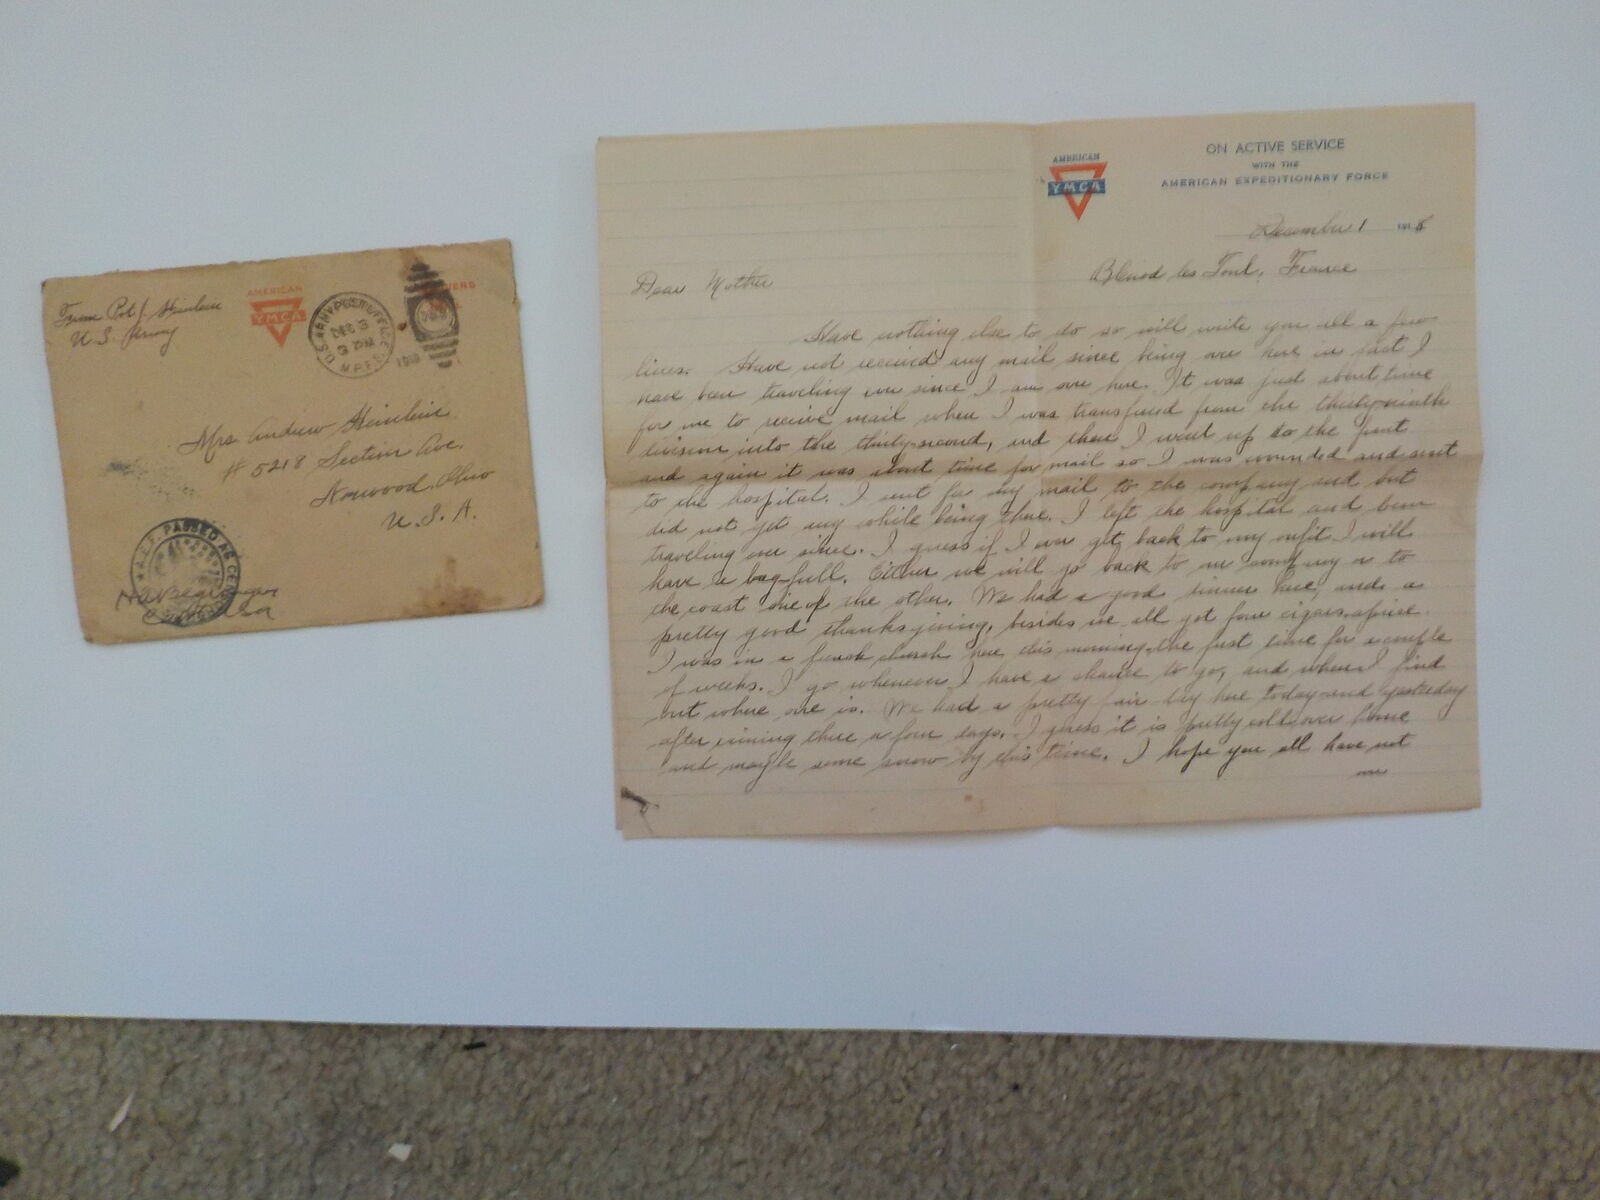 From Pvt J. Heinlein
U. S. Army
AMERICAN
YMCA
U.S. ARMY POST OFFICE
DEC 3
1918
M.P.E.S.
Mrs Andrew Heinlein
# 5218 Section Ave.
Norwood, Ohio
U. S. A.
A.E.F. PASSED AS CENSORED
AMERICAN
YMCA
ON ACTIVE SERVICE
WITH THE
AMERICAN EXPEDITIONARY FORCE
December 1 1918
Blenod les Toul, France
Dear Mother
Have nothing else to do so will write you all a few
lines. Have not received any mail since being over here in fact I
have been traveling ever since I am over here. It was just about time
for me to receive mail when I was transfered from the thirty-ninth
division into the thirty-second, and then I went up to the front
and again it was about time for mail so I was wounded and sent
to the hospital. I sent for my mail to the company and but
did not get any while being there. I left the hospital and been
traveling ever since. I guess if I ever get back to my outfit I will
have a bag-full. Either we will go back to our company or to
the coast one of the other. We had a good dinner here, and a
pretty good thanksgiving, besides we all got four cigars apiece.
I was in a french church here this morning, the first time for a couple
of weeks. I go whenever I have a chance to go, and when I find
out where one is. We had a pretty fair day here today and yesterday
after raining there a few days. I guess it is pretty cold over home
and maybe some snow by this time. I hope you all have not